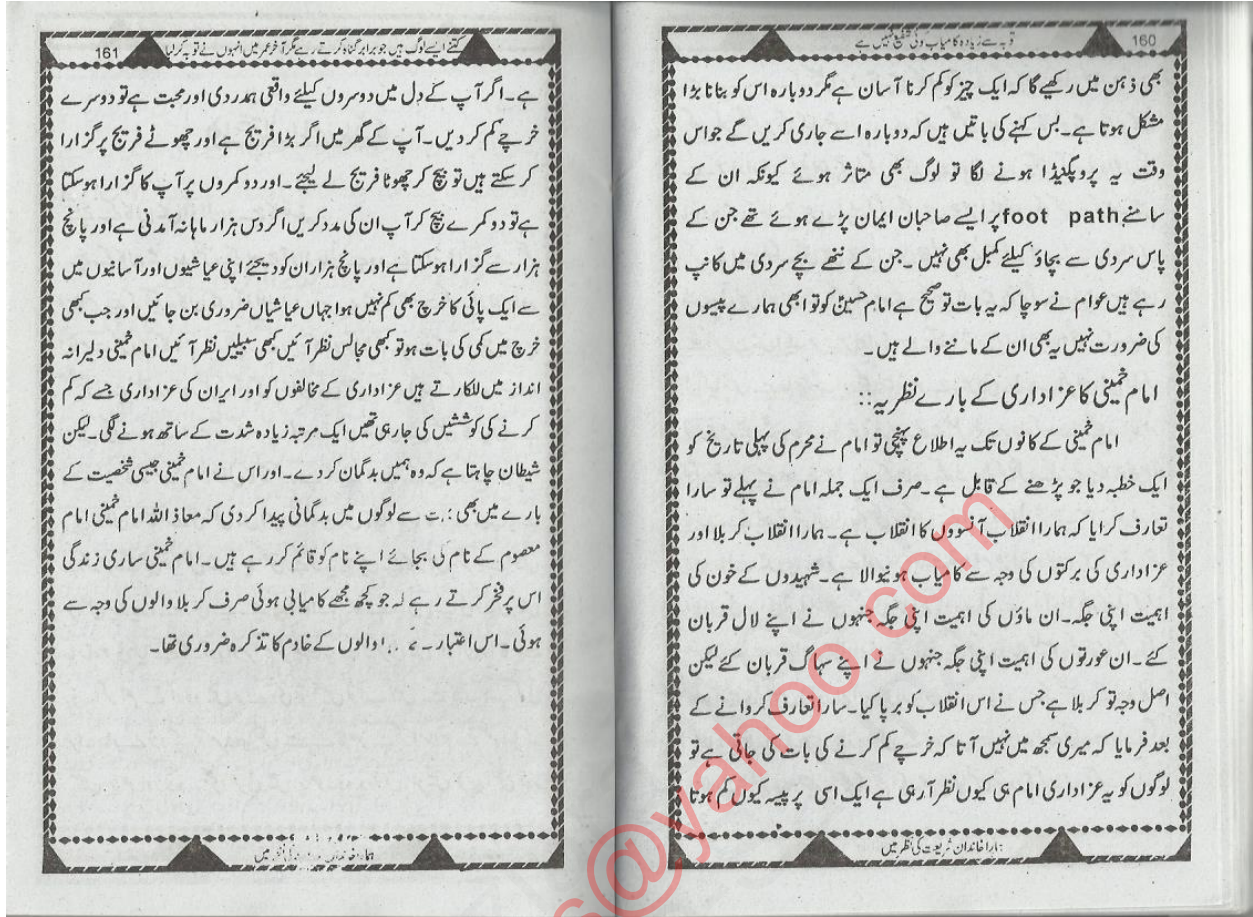 160
توبہ سے زیادہ کامیاب کوئی شفیع نہیں ہے
بھی ذہن میں رکھیے گا کہ ایک چیز کو کم کرنا آسان ہے مگر دوبارہ اس کو بنانا بڑا
مشکل ہوتا ہے۔ بس کہنے کی باتیں ہیں کہ دوبارہ اسے جاری کریں گے جو اس
وقت یہ پروپگنیڈا ہونے لگا تو لوگ بھی متاثر ہوئے کیونکہ ان کے
سامنے foot path پر ایسے صاحبان ایمان پڑے ہوئے تھے جن کے
پاس سردی سے بچاؤ کیلئے کمبل بھی نہیں ۔ جن کے ننھے بچے سردی میں کانپ
رہے ہیں عوام نے سوچا کہ یہ بات تو صحیح ہے امام حسینؑ کو تو ابھی ہمارے پیسوں
کی ضرورت نہیں یہ بھی ان کے ماننے والے ہیں ۔
امام خمینی کا عزاداری کے بارے نظریہ ::
امام خمینی کے کانوں تک یہ اطلاع پہنچی تو امام نے محرم کی پہلی تاریخ کو
ایک خطبہ دیا جو پڑھنے کے قابل ہے ۔ صرف ایک جملہ امام نے پہلے تو سارا
تعارف کرایا کہ ہمارا انقلاب آنسووں کا انقلاب ہے ۔ ہمارا انقلاب کربلا اور
عزاداری کی برکتوں کی وجہ سے کامیاب ہونیوالا ہے ۔ شہیدوں کے خون کی
اہمیت اپنی جگہ ۔ ان ماؤں کی اہمیت اپنی جگہ جنہوں نے اپنے لال قربان
کئے ۔ ان عورتوں کی اہمیت اپنی جگہ جنہوں نے اپنے سہاگ قربان کئے لیکن
اصل وجہ تو کربلا ہے جس نے اس انقلاب کو برپا کیا ۔ سارا تعارف کروانے کے
بعد فرمایا کہ میری سمجھ میں نہیں آتا کہ خرچے کم کرنے کی بات کی جاتی ہے تو
لوگوں کو یہ عزاداری امام ہی کیوں نظر آ رہی ہے ایک اسی پر پیسہ کیوں کم ہوتا
ہمارا خاندان شریعت کی نظر میں
161
کتنے ایسے لوگ ہیں جو برابر گناہ کرتے رہے مگر آخر عمر میں انہوں نے توبہ کر لیا
ہے ۔ اگر آپ کے دل میں دوسروں کیلئے واقعی ہمدردی اور محبت ہے تو دوسرے
خرچے کم کر دیں ۔ آپ کے گھر میں اگر بڑا فریج ہے اور چھوٹے فریج پر گزارا
کر سکتے ہیں تو بیچ کر چھوٹا فریج لے لیجئے ۔ اور دو کمروں پر آپ کا گزارا ہو سکتا
ہے تو دو کمرے بیچ کر آپ ان کی مدد کریں اگر دس ہزار ماہانہ آمدنی ہے اور پانچ
ہزار سے گزارا ہو سکتا ہے اور پانچ ہزار ان کو دیجئے اپنی عیاشیوں اور آسانیوں میں
سے ایک پائی کا خرچ بھی کم نہیں ہوا جہاں عیاشیاں ضروری بن جائیں اور جب کبھی
خرچ میں کمی کی بات ہو تو کبھی مجالس نظر آئیں کبھی سبیلیں نظر آئیں امام خمینی دلیرانہ
انداز میں للکارتے ہیں عزاداری کے مخالفوں کو اور ایران کی عزاداری جسے کہ کم
کرنے کی کوششیں کی جا رہی تھیں ایک مرتبہ زیادہ شدت کے ساتھ ہونے لگی ۔ لیکن
شیطان چاہتا ہے کہ وہ ہمیں بدگمان کر دے ۔ اور اس نے امام خمینی جیسی شخصیت کے
بارے میں بھی سے لوگوں میں بدگمانی پیدا کر دی کہ معاذ اللہ امام خمینی امام
معصوم کے نام کی بجائے اپنے نام کو قائم کر رہے ہیں ۔ امام خمینی ساری زندگی
اس پر فخر کرتے رہے کہ جو کچھ مجھے کامیابی ہوئی صرف کربلا والوں کی وجہ سے
ہوئی ۔ اس اعتبار والوں کے خادم کا تذکرہ ضروری تھا ۔
نظر میں
@yahoo.com